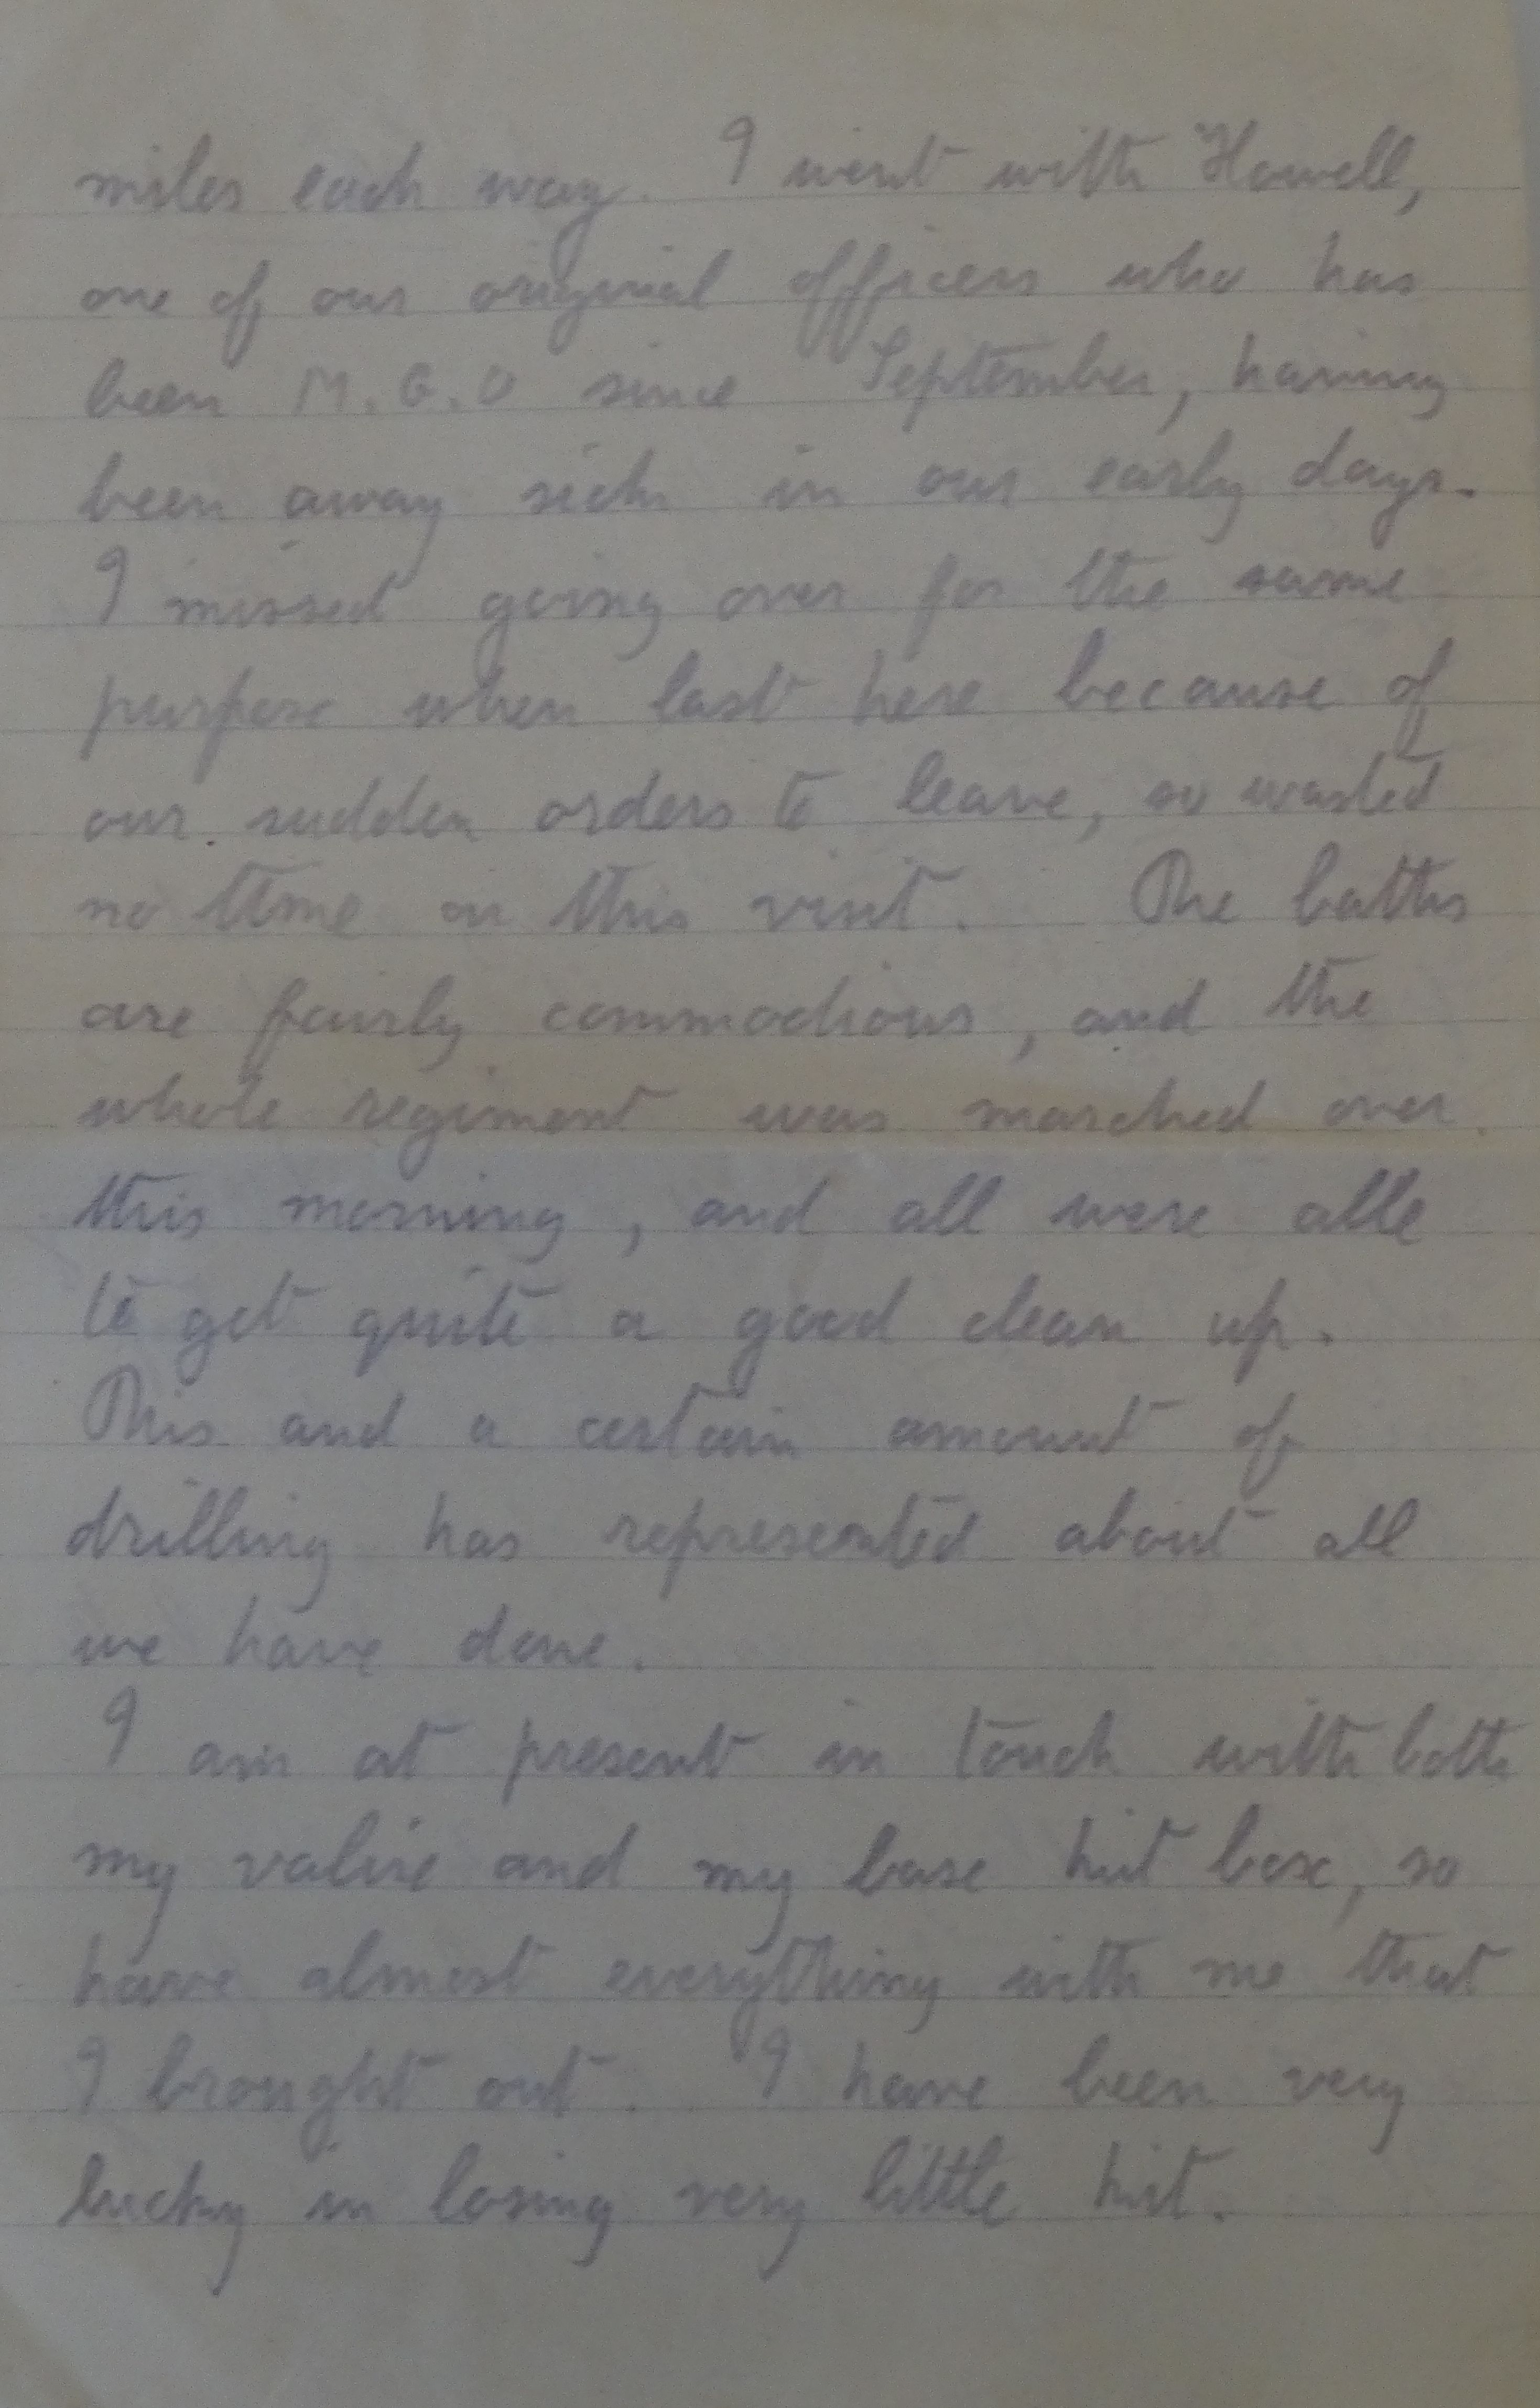 miles each way. I went with Howell,
one of our original officers who has
been M.G.O since September, having
been away sick in our early days.
I missed going over for the same
purpose when last here because of
our sudden orders to leave, so wasted
no time on this visit. The baths
are fairly commodious, and the
whole regiment was marched over
this morning, and all were able
to get quite a good clean up.
This and a certain amount of
drilling has represented about all
we have done.
I am at present in touch with both
my valise and my base kit box, so
have almost everything with me that
I brought out. I have been very
lucky in losing very little kit.